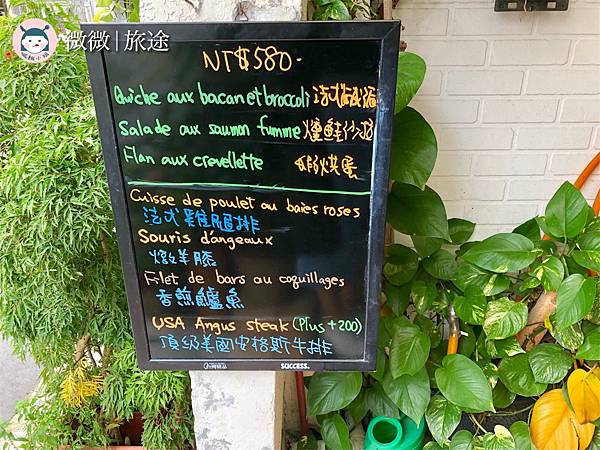 微微 | 旅途
NT$580-
Quiche aux bacan et broccoli 法式鹹派
Salade aux saumon fumme 燻鮭沙拉
Flan aux crevellette 蝦烘蛋
Cuisse de poulet au baies roses
法式雞腿排
Souris dangeaux
燉羊膝
Filet de bars au coquillages
香煎鱸魚
USA Angus steak (Plus+200)
頂級美國安格斯牛排
SUCCESS.